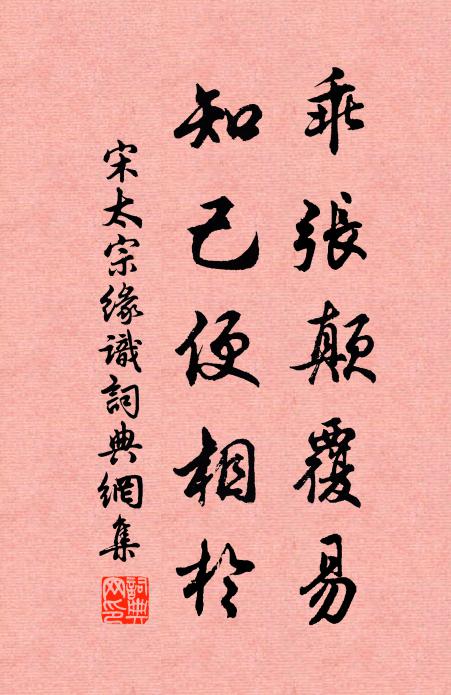 乖張顛覆易
知己便相於
宋太宗緣識詞典網集
詞典網印